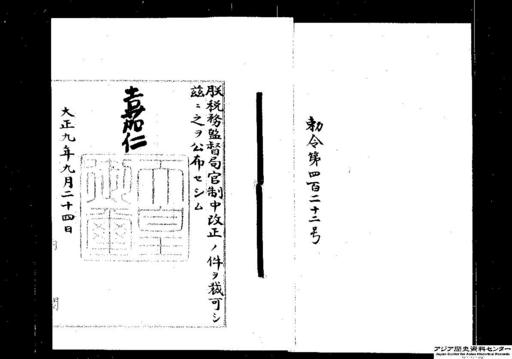 勅令第四百二十二号
朕税務監督局官制中改正ノ件ヲ裁可シ
茲ニ之ヲ公布セシム
嘉仁
天皇御璽
大正九年九月二十四日
アジア歴史資料センター
Japan Center for Asian Historical Records